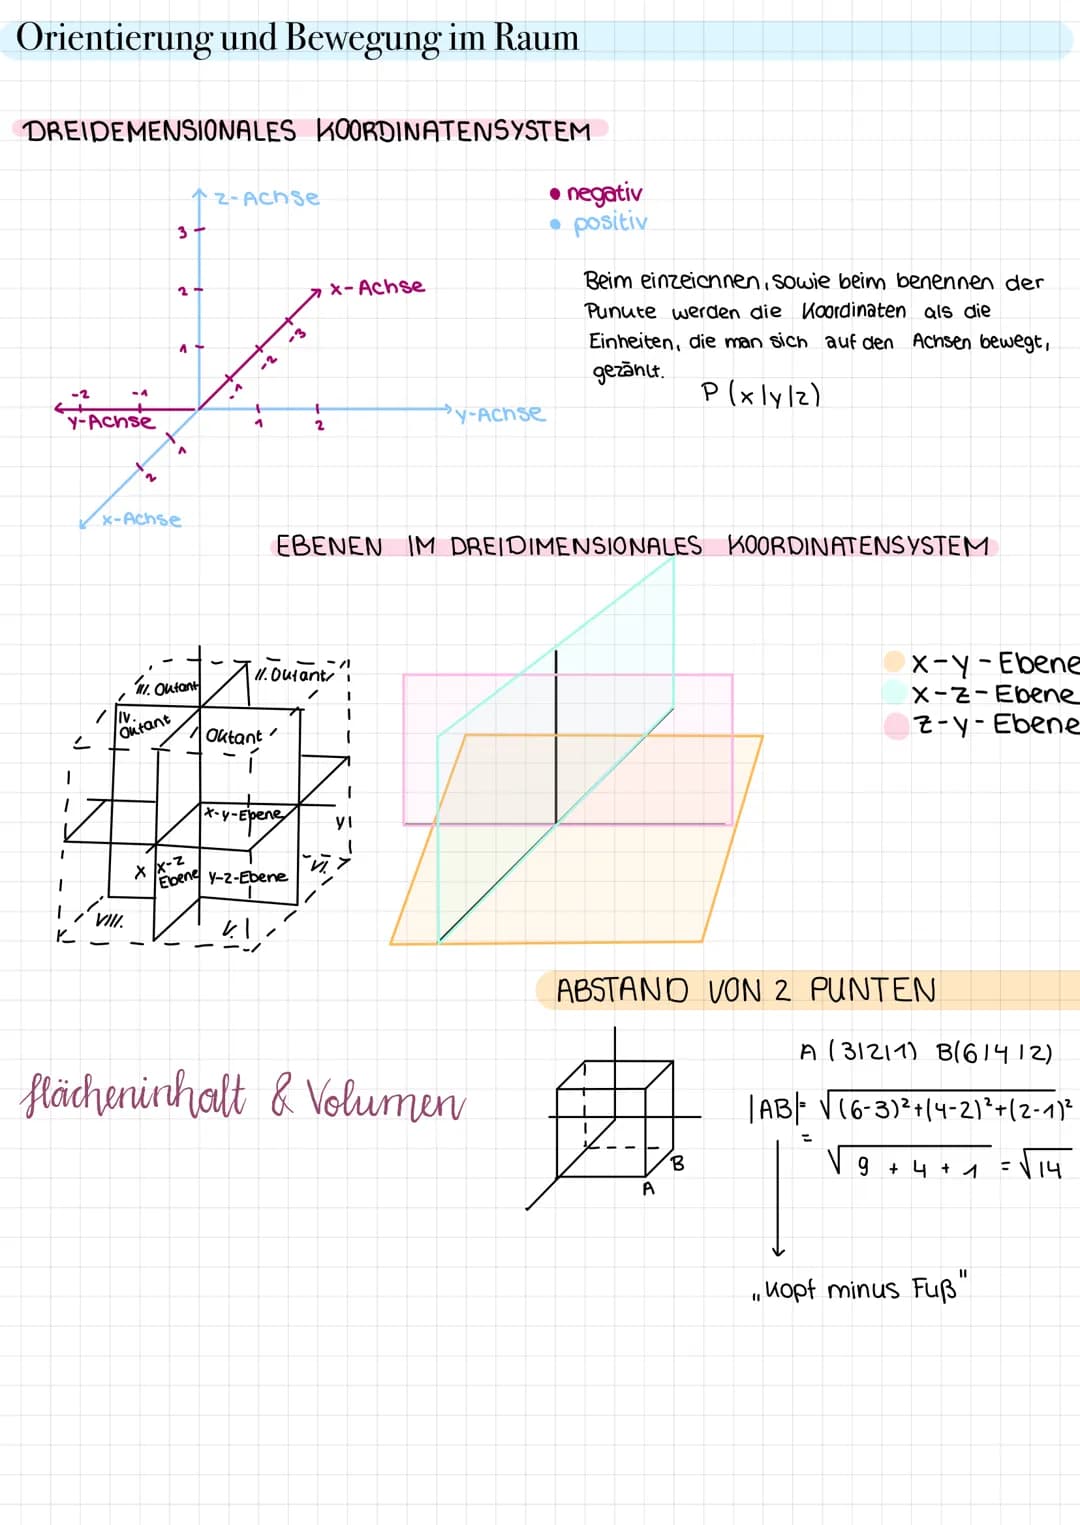 Orientierung und Bewegung im Raum
DREIDEMENSIONALES KOORDINATENSYSTEM
z-Achse
3
2
1
x-Achse
-3
-2
-1
-2 -1
y-Achse
1 2
y-Achse
1
2
x-Achse
• negativ
• positiv
Beim einzeichnen, sowie beim benennen der
Punkte werden die Koordinaten als die
Einheiten, die man sich auf den Achsen bewegt,
gezählt.
P (x|y|z)
EBENEN IM DREIDIMENSIONALES KOORDINATENSYSTEM
III. Oktant
II. Oktant
IV.
Oktant
I Oktant
x-y-Ebene
y
x
x-z
Ebene
y-z-Ebene
VI.
VIII.
V.
x-y-Ebene
x-z-Ebene
z-y-Ebene
ABSTAND VON 2 PUNTEN
A (3|2|1) B(6|4|2)
|AB|= √(6-3)²+(4-2)²+(2-1)²
= √9 + 4 + 1 = √14
B
A
„Kopf minus Fuß"
flächeninhalt & Volumen